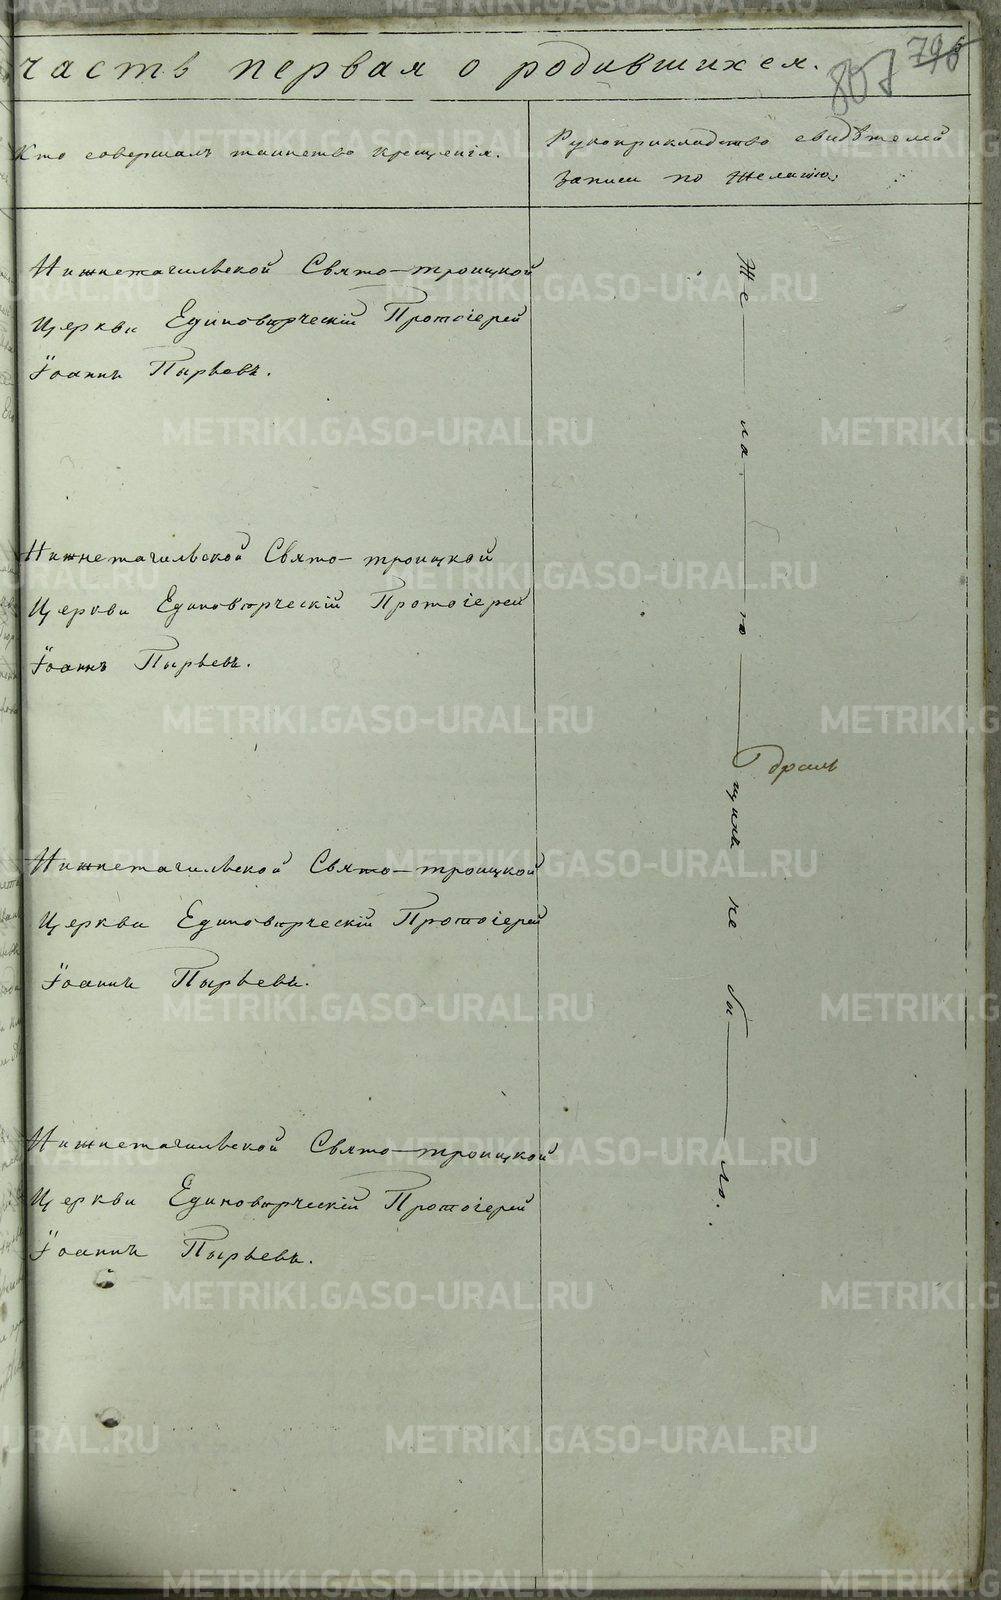 часть первая о родившихся.
807 796
Кто совершалъ таинство крещенія.
Рукоприкладство свидѣтелей
записи по желанію.
Нижнетагильской Свято-троицкой
Церкви Единовѣрческій Протоіерей
Іоаннъ Пырьевъ.
Нижнетагильской Свято-троицкой
Церкви Единовѣрческій Протоіерей
Іоаннъ Пырьевъ.
Нижнетагильской Свято-троицкой
Церкви Единовѣрческій Протоіерей
Іоаннъ Пырьевъ.
Нижнетагильской Свято-троицкой
Церкви Единовѣрческій Протоіерей
Іоаннъ Пырьевъ.
Же ла ю щихъ не бы ло.
METRIKI.GASO-URAL.RU